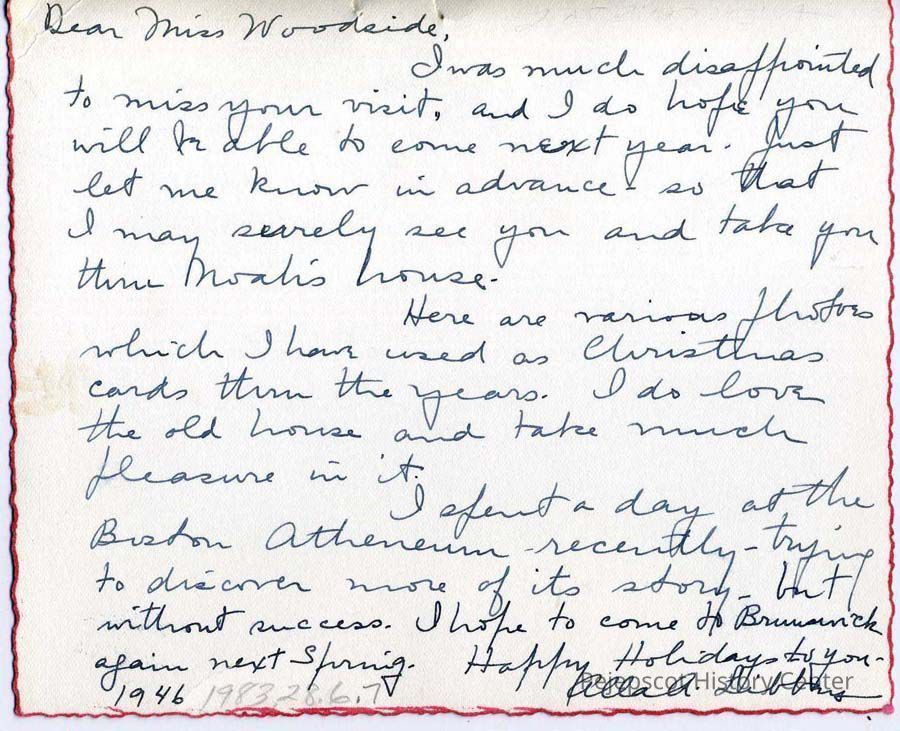 Dear Miss Woodside,
I was much disappointed
to miss your visit, and I do hope you
will be able to come next year. Just
let me know in advance - so that
I may surely see you and take you
thru house.
Here are various photoes
which I have used as Christmas
cards thru the years. I do love
the old house and take much
pleasure in it.
I spent a day at the
Boston Atheneum - recently - trying
to discover more of its story - but
without success. I hope to come to Brunswick
again next Spring. Happy Holidays to you -
1946 1983.28.6.7
Pejepscot History Center